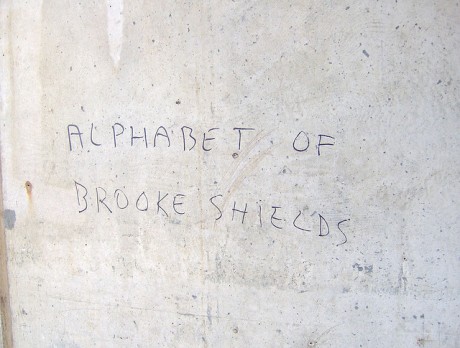 ALPHABET OF
BROOKE SHIELDS